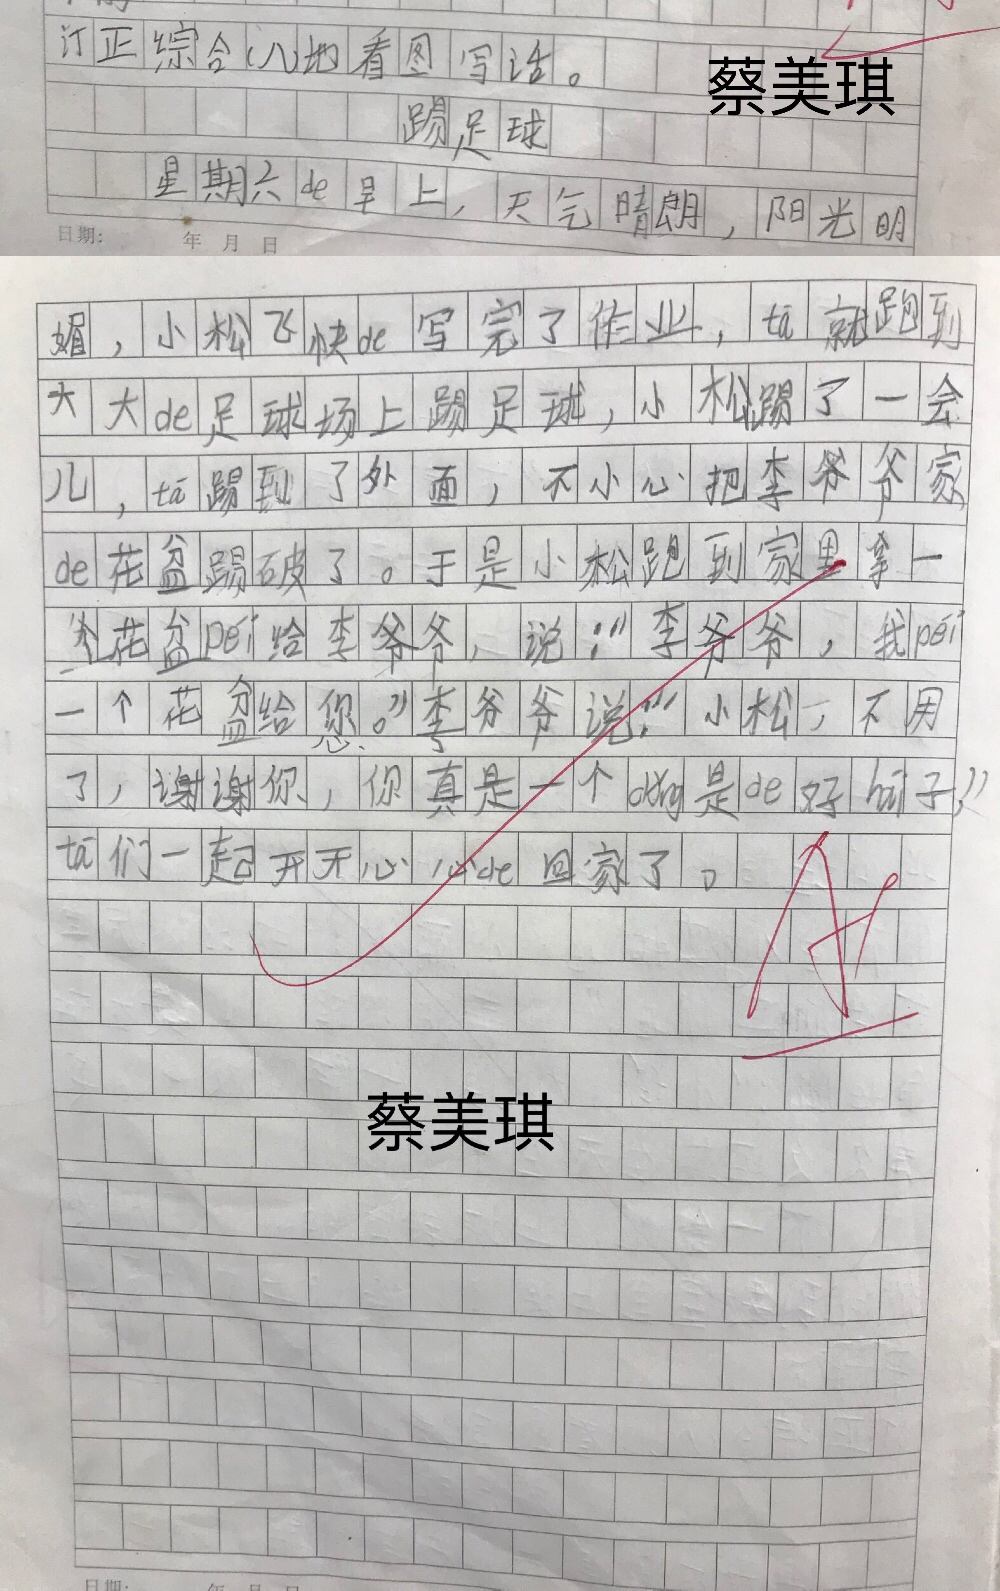 订正综合(八)地看图写话。
蔡美琪
踢足球
星期六de早上,天气晴朗,阳光明
日期: 年 月 日
媚,小松飞快de写完了作业,tā就跑到
大大de足球场上踢足球,小松踢了一会
儿,tā踢到了外面,不小心把李爷爷家
de花盆踢破了。于是小松跑到家里拿一
个花盆péi给李爷爷,说:“李爷爷,我péi
一个花盆给您。”李爷爷说:“小松,不用
了,谢谢你,你真是一个dǒng是de好hái子,”
tā们一起开开心心de回家了。
A+
蔡美琪
日期: 年 月 日